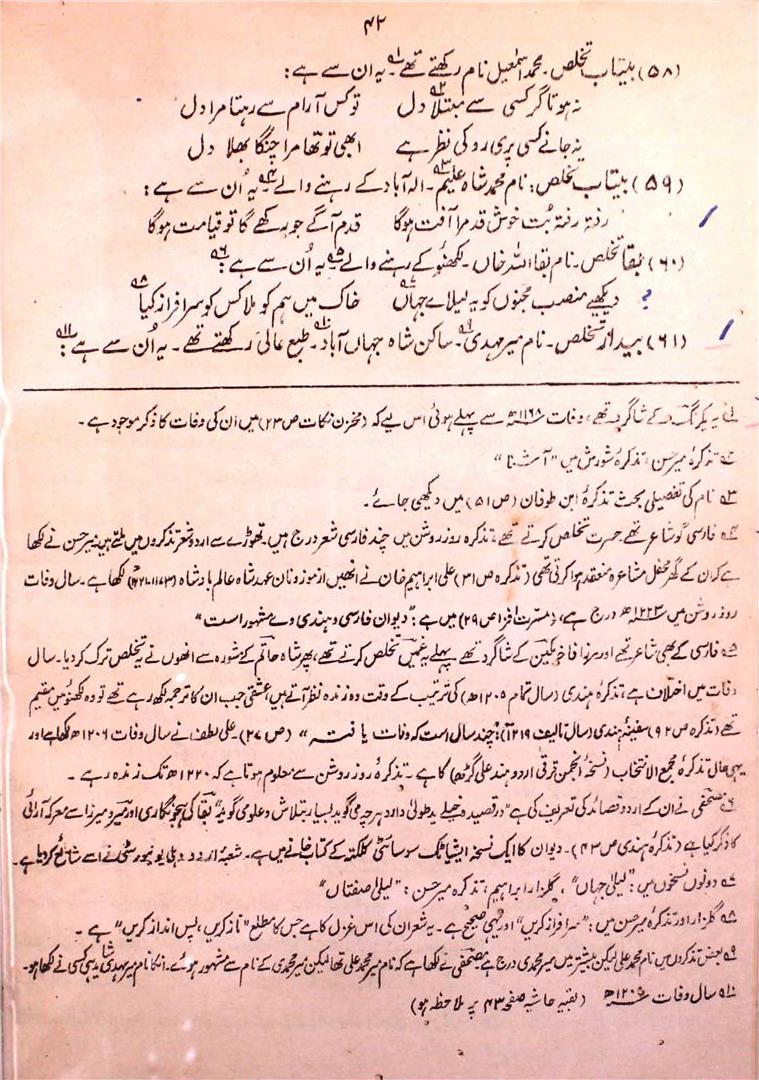 ۴۲
(۵۸) بیتاب تخلص۔ محمد اسمٰعیل نام رکھتے تھے ۱؎۔ یہ ان سے ہے:
نہ ہوتا گر کسی سے مبتلا ۲؎ دل تو کس آرام سے رہتا مرا دل
یہ جانے کسی پری رو کی نظر ہے ابھی تو تھا مرا چنگا بھلا دل
(۵۹) بیتاب تخلص: نام محمد شاہ علیم ۳؎۔ الہ آباد کے رہنے والے ۴؎۔ یہ اُن سے ہے:
رفتہ رفتہ بُت خوش قد مرا آفت ہوگا قدم آگے جو رکھے گا تو قیامت ہوگا
(۶۰) بقا تخلص۔ نام بقا اللہ خاں۔ لکھنؤ کے رہنے والے ۵؎۔ یہ اُن سے ہے: ۶؎
دیکھیے منصب مجنوں کو یہ لیلاے جہاں ۷؎ خاک میں ہم کو ملا کس کو سرافراز کیا ۸؎
(۶۱) بیدار تخلص۔ نام میر مہدی ۹؎۔ ساکن شاہ جہاں آباد ۱۰؎۔ طبع عالی رکھتے تھے۔ یہ اُن سے ہے: ۱۱؎
۱؎ یہ یکرنگ کے شاگرد تھے، وفات ۱۱۶۸ھ سے پہلے ہوئی اس لیے کہ (مخزن نکات ص ۲۳) میں ان کی وفات کا ذکر موجود ہے۔
۲؎ تذکرۂ میر حسن، تذکرۂ شورش میں "آشنا"
۳؎ نام کی تفصیلی بحث تذکرۂ ابن طوفان (ص ۵۱) میں دیکھی جائے۔
۴؎ فارسی گو شاعر تھے حیرت تخلص کرتے تھے، تذکرہ روز روشن میں چند فارسی شعر درج ہیں۔ تھوڑے سے اردو شعر تذکروں میں ملتے ہیں۔ میر حسن نے لکھا
ہے کہ ان کے گھر محفل مشاعرہ منعقد ہوا کرتی تھی (تذکرہ ص ۳۱) علی ابراہیم خان نے انھیں از موزونان عہد شاہ عالم بادشاہ لکھا ہے۔ سال وفات
روز روشن میں ۱۲۲۳ھ درج ہے، (مسرت افزا ص ۲۹) میں ہے: "دیوان فارسی و ہندی وے مشہور است"
۵؎ فارسی کے بھی شاعر تھے اور مرزا فاخر مکین کے شاگرد تھے پہلے یہ غمیں تخلص کرتے تھے، پھر شاہ حاتم کے مشورہ سے انھوں نے یہ تخلص ترک کر دیا۔ سال
وفات میں اختلاف ہے، تذکرۂ ہندی (سال تمام ۱۲۰۵ھ) کی ترتیب کے وقت وہ زندہ نظر آتے ہیں، عشقی جب ان کا ترجمہ لکھ رہے تھے تو وہ لکھنؤ میں مقیم
تھے (تذکرہ ص ۹۲) سفینۂ ہندی (سال تالیف ۱۲۱۹): "چند سال است کہ وفات یافتہ" (ص ۲۷)۔ علی لطف نے سال وفات ۱۲۰۶ھ لکھا ہے اور
یہی حال تذکرۂ مجمع الانتخاب (نسخۂ انجمن ترقی اردو ہند علی گڑھ) کا ہے۔ تذکرۂ روز روشن سے معلوم ہوتا ہے کہ ۱۲۲۰ھ تک زندہ رہے۔
۶؎ مصحفی نے ان کے اردو قصائد کی تعریف کی ہے "در قصیدہ خیلے ید طولیٰ دارد ہر چہ می گوید بسیار بتلاش و علومی گوید" بقا کی ہجو نگاری اور میر و میرزا سے معرکہ آرائی
کا ذکر کیا ہے (تذکرۂ ہندی ص ۴۳)۔ دیوان کا ایک نسخہ ایشیاٹک سوسائٹی کلکتہ کے کتب خانے میں ہے۔ شعبۂ اردو دہلی یونیورسٹی نے اسے شائع کر دیا ہے۔
۷؎ دونوں نسخوں میں: "لیلیٰ جہاں"، گلزار ابراہیم، تذکرہ میر حسن: "لیلیٰ صفتاں"
۸؎ گلزار اور تذکرۂ میر حسن میں: "سرافراز کریں" اور یہی صحیح ہے۔ یہ شعر ان کی اس غزل کا ہے جس کا مطلع "ناز کریں، پس انداز کریں" ہے۔
۹؎ بعض تذکروں میں نام محمد علی لیکن بیشتر میں میر محمدی درج ہے۔ مصحفی نے لکھا ہے کہ نام میر محمد علی تھا لیکن میر محمدی کے نام سے مشہور ہوئے۔ انکا نام میر مہدی شاید ہی کسی نے لکھا ہو۔
۱۰؎ سال وفات ۱۲۰۹ھ (بقیہ حاشیہ صفحہ ۴۳ پر ملاحظہ ہو)